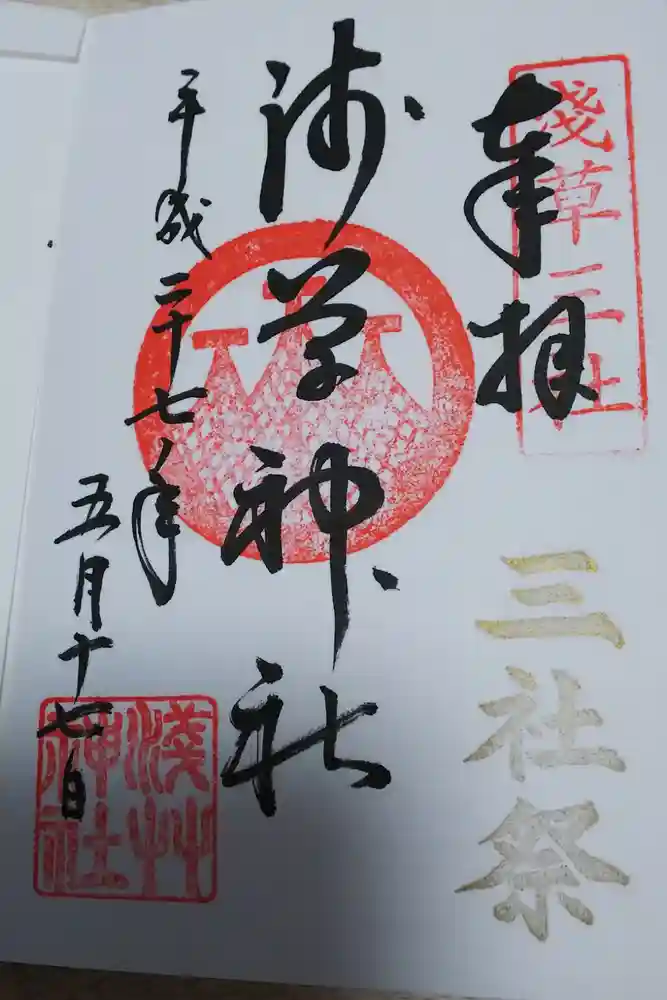 淺草三社
奉拝
三社祭
浅草神社
平成二十七年
五月十七日
淺艸
神社